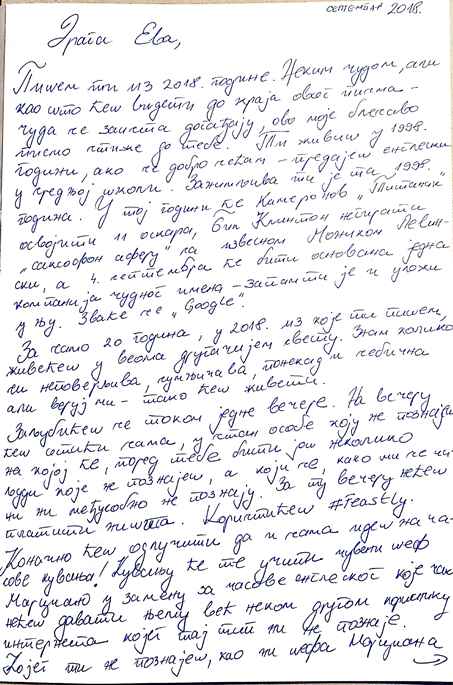 септембар 2018.
Драга Ева,
Пишем ти из 2018. године. Неким чудом, али
као што ћеш видети до краја овог писма –
чуда се заиста догађају, ово моје блесаво
писмо стиже до тебе. Ти живиш у 1998.
години, ако се добро сећам – предајеш енглески
у средњој школи. Занимљива ти је та 1998.
година. У тој години ће Камеронов „Титаник“
освојити 11 оскара, Бил Клинтон негирати
„саксофон аферу“ са извесном Моником Левин-
ски, а 4. септембра ће бити основана једна
компанија чудног имена – запамти је и уложи
у њу. Зваће се „Google“.
За само 20 година, у 2018. из које ти пишем,
живећеш у веома другачијем свету. Знам колико
си неповерљива, сумњичава, понекад и себична
али веруј ми – тако ћеш живети.
Заљубићеш се током једне вечере. На вечеру
ћеш отићи сама, у стан особе коју не познајеш
на којој ће, поред тебе бити још неколико
људи које не познајеш, а који се, како ми се чи-
ни ни међусобно не познају. За ту вечеру нећеш
платити ништа. Користићеш #feastly.
Коначно ћеш одлучити да и сама идеш на ча-
сове кувања! Кувању ће те учити чувени шеф
Марцијано у замену за часове енглеског које чак
нећеш давати њему већ неком другом кориснику
интернета којег тај тип ни не познаје.
Којег ти не познајеш, као ни шефа Марцијана
→